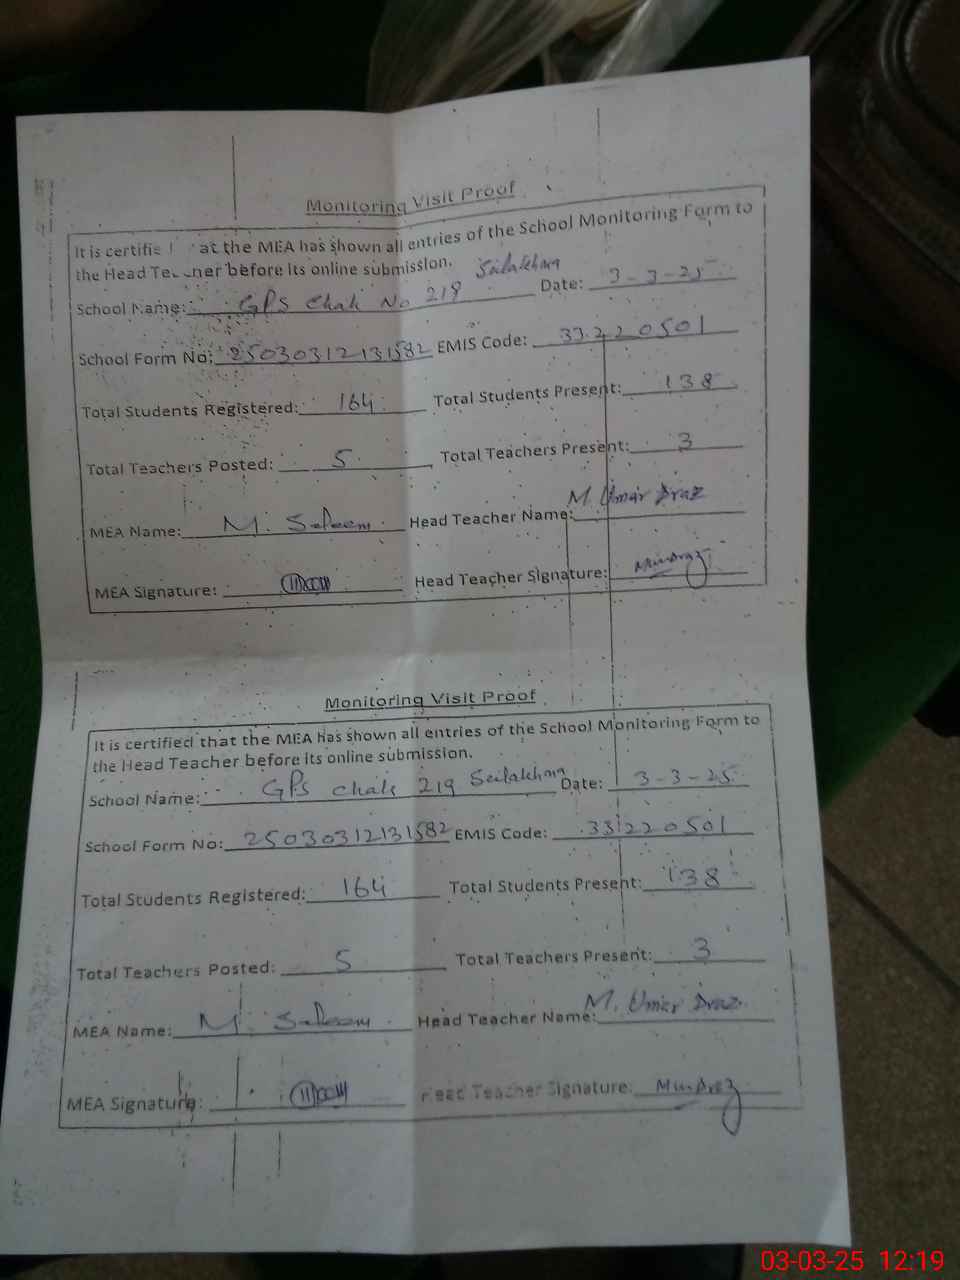 Monitoring Visit Proof
It is certifie at the MEA has shown all entries of the School Monitoring Form to
the Head Te ner before its online submission.
School Name: GPS Chak No 219 Sailakhma Date: 3-3-25
School Form No: 25030312131582 EMIS Code: 33220501
Total Students Registered: 164 Total Students Present: 138
Total Teachers Posted: 5 Total Teachers Present: 3
MEA Name: M. Saleem Head Teacher Name: M. Umar Draz
MEA Signature: Head Teacher Signature:
Monitoring Visit Proof
It is certified that the MEA has shown all entries of the School Monitoring Form to
the Head Teacher before its online submission.
School Name: GPS Chak 219 Date: 3-3-25
School Form No: 25030312131582 EMIS Code: 33220501
Total Students Registered: 164 Total Students Present: 138
Total Teachers Posted: 5 Total Teachers Present: 3
MEA Name: M. Saleem Head Teacher Name: M. Umar Draz
MEA Signature: Head Teacher Signature:
03-03-25 12:19